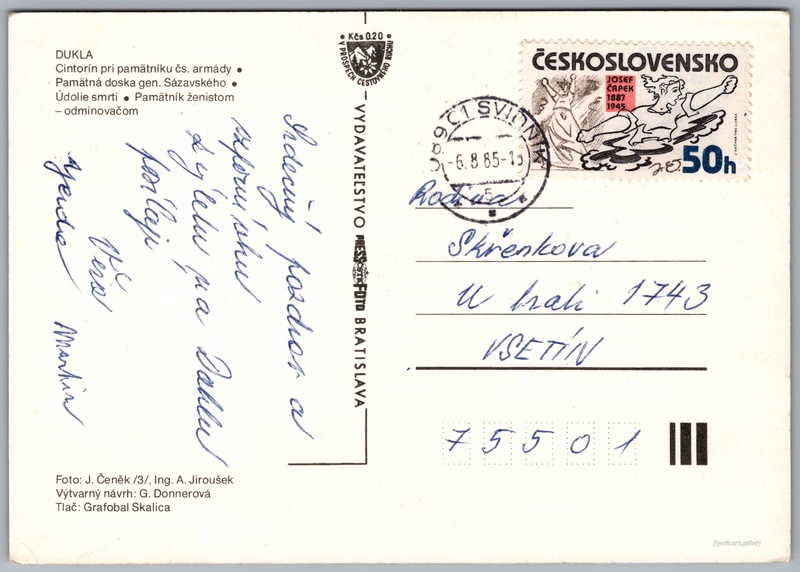 DUKLA
Cintorín pri pamätníku čs. armády ●
Pamätná doska gen. Sázavského ●
Údolie smrti ● Pamätník ženistom
– odmínovačom
Srdečný pozdrav a
vzpomínku
z výletu na Duklu
posílají
Vč
Věra
Jenda
Martin
Foto: J. Čeněk /3/, Ing. A. Jiroušek
Výtvarný návrh: G. Donnerová
Tlač: Grafobal Skalica
Kčs 0.20
V PROSPECH CESTOVNÉHO RUCHU
VYDAVATEĽSTVO PRESSFOTO BRATISLAVA
ČESKOSLOVENSKO
JOSEF
ČAPEK
1887
1945
50h
089 01 SVIDNÍK
-6.8.85-15
Rodina
Skřenkova
U trati 1743
VSETÍN
75501
postcard.gallery